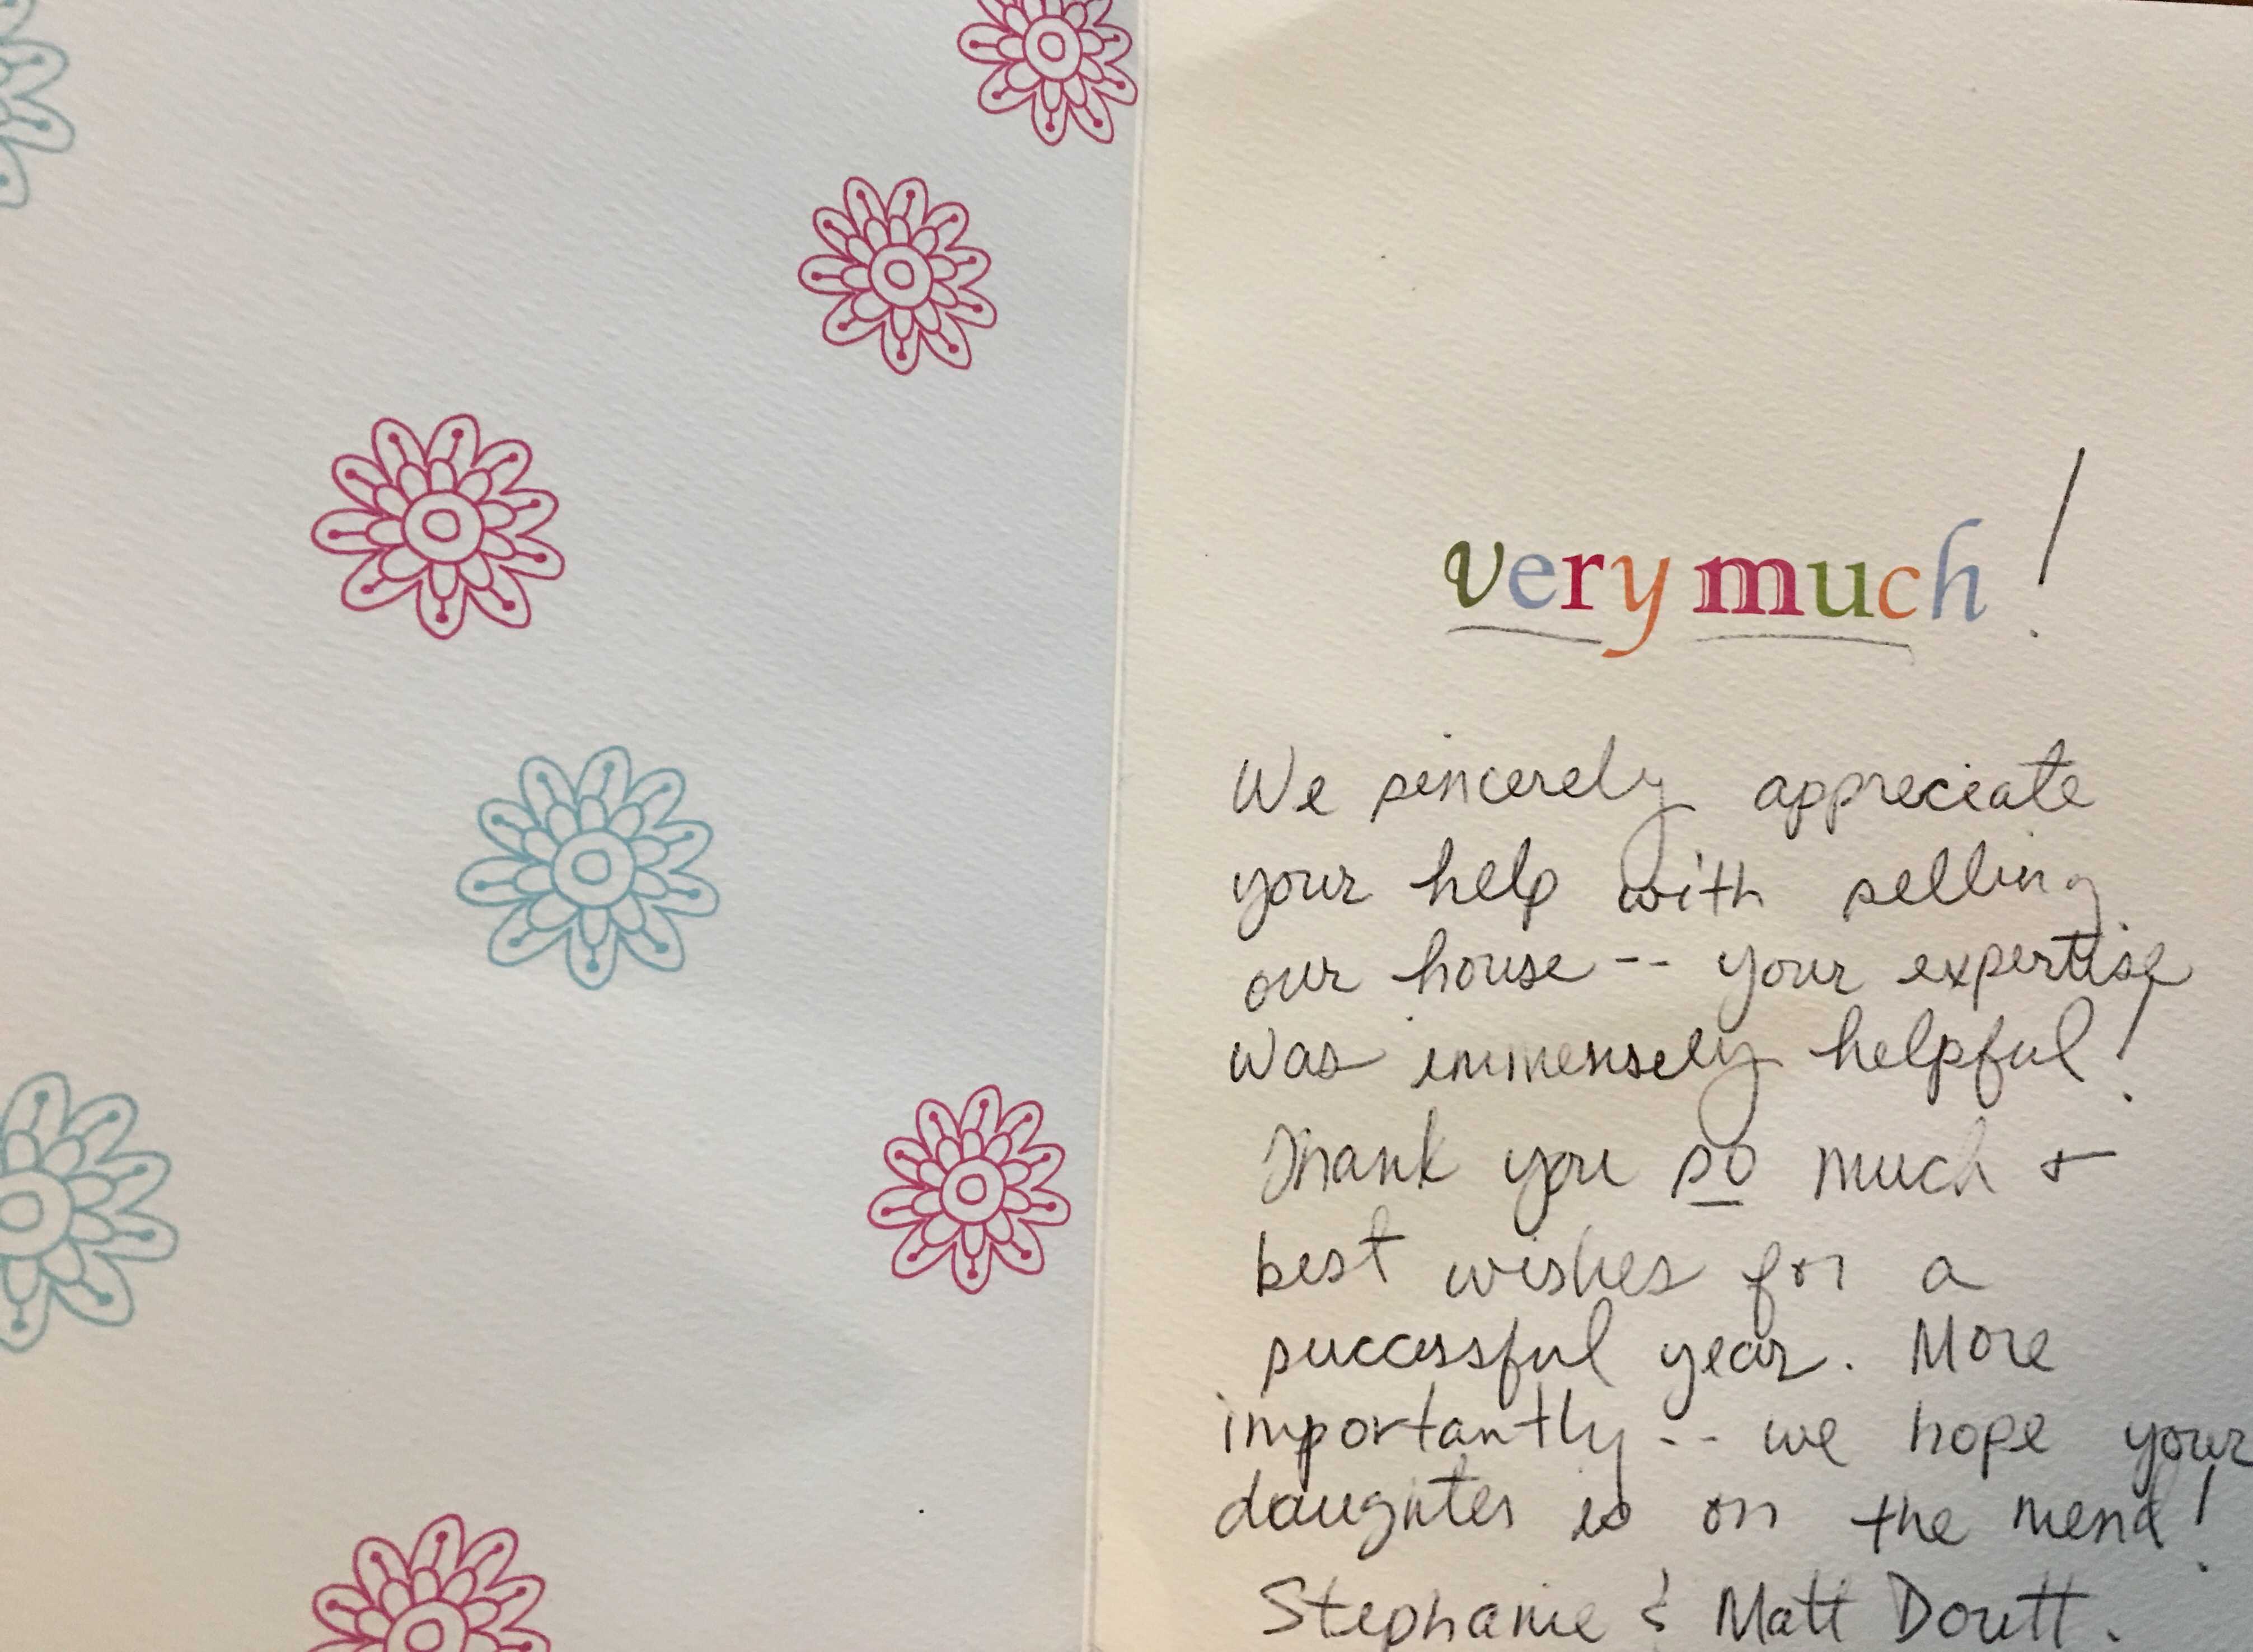 very much!
We sincerely appreciate
your help with selling
our house -- your expertise
was immensely helpful!
Thank you so much +
best wishes for a
successful year. More
importantly -- we hope your
daughter is on the mend!
Stephanie & Matt Doutt.